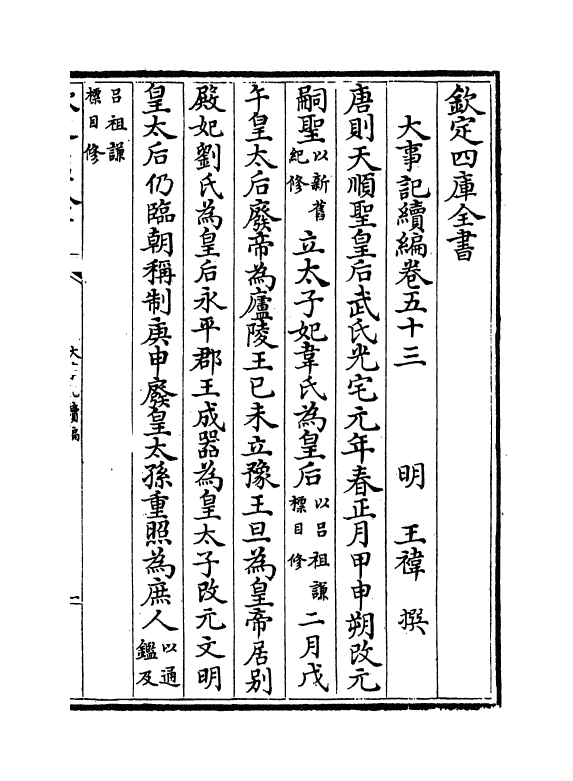 欽定四庫全書
大事記續編卷五十三 明 王禕 撰
唐則天順聖皇后武氏光宅元年春正月甲申朔改元
嗣聖以新舊紀修立太子妃韋氏為皇后以呂祖謙標目修二月戊
午皇太后廢帝為廬陵王已未立豫王旦為皇帝居别
殿妃劉氏為皇后永平郡王成器為皇太子改元文明
皇太后仍臨朝稱制庚申廢皇太孫重照為庶人以通鑑及
呂祖謙標目修